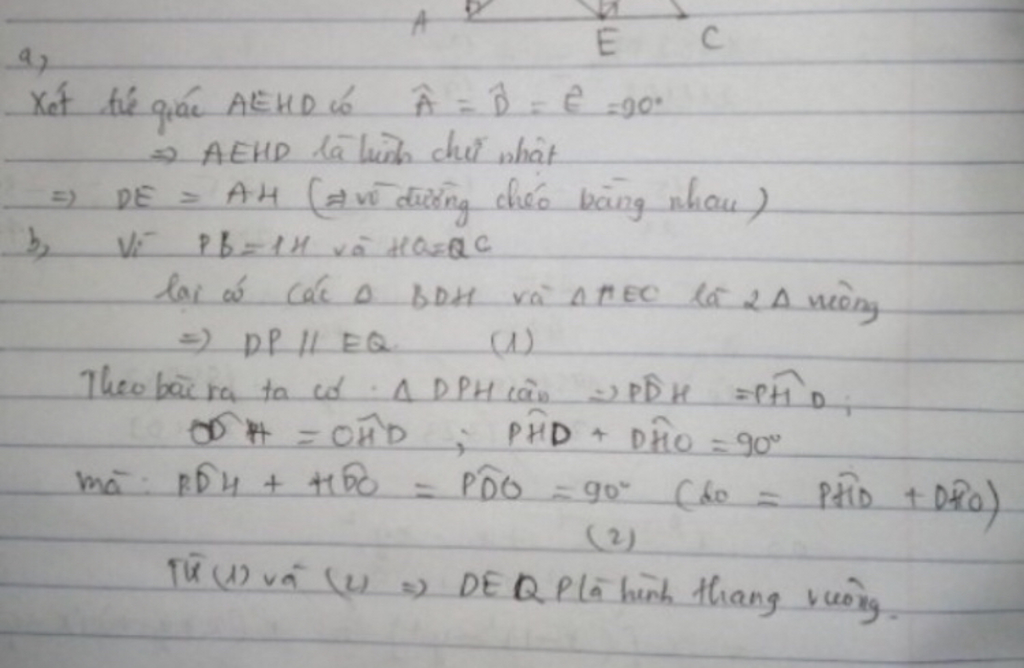 A E C
a,
Xét tứ giác AEHD có Â = D̂ = Ê = 90°
=> AEHD là hình chữ nhật
=> DE = AH (=> vì đường chéo bằng nhau)
b, Vì PB = 1H và HQ=QC
lại có các Δ BDH và Δ HEC là 2 Δ vuông
=> DP // EQ (1)
Theo bài ra ta có. Δ DPH cân => PD̂H = PĤD ;
OD̂H = OĤD ; PĤD + DĤO = 90°
mà: PD̂H + HD̂O = PD̂O = 90° (do = PĤD + DĤO)
(2)
Từ (1) và (2) => DEQP là hình thang vuông.